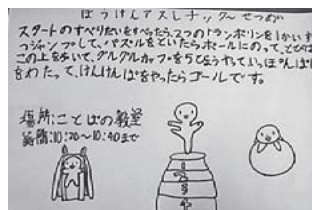 ぼうけんアスレチック〜せつめい
スタートのすべりだいをすべったら2つのトランポリンを1かいず
つジャンプして、パズルをといたらボールにのって、とびば
この上を歩いて、グルグルカップを5じゅうやって、いっぽんばし
をわたって、けんけんぱをやったらゴールです。
場所:ことばの教室
時間:10:20〜10:40まで